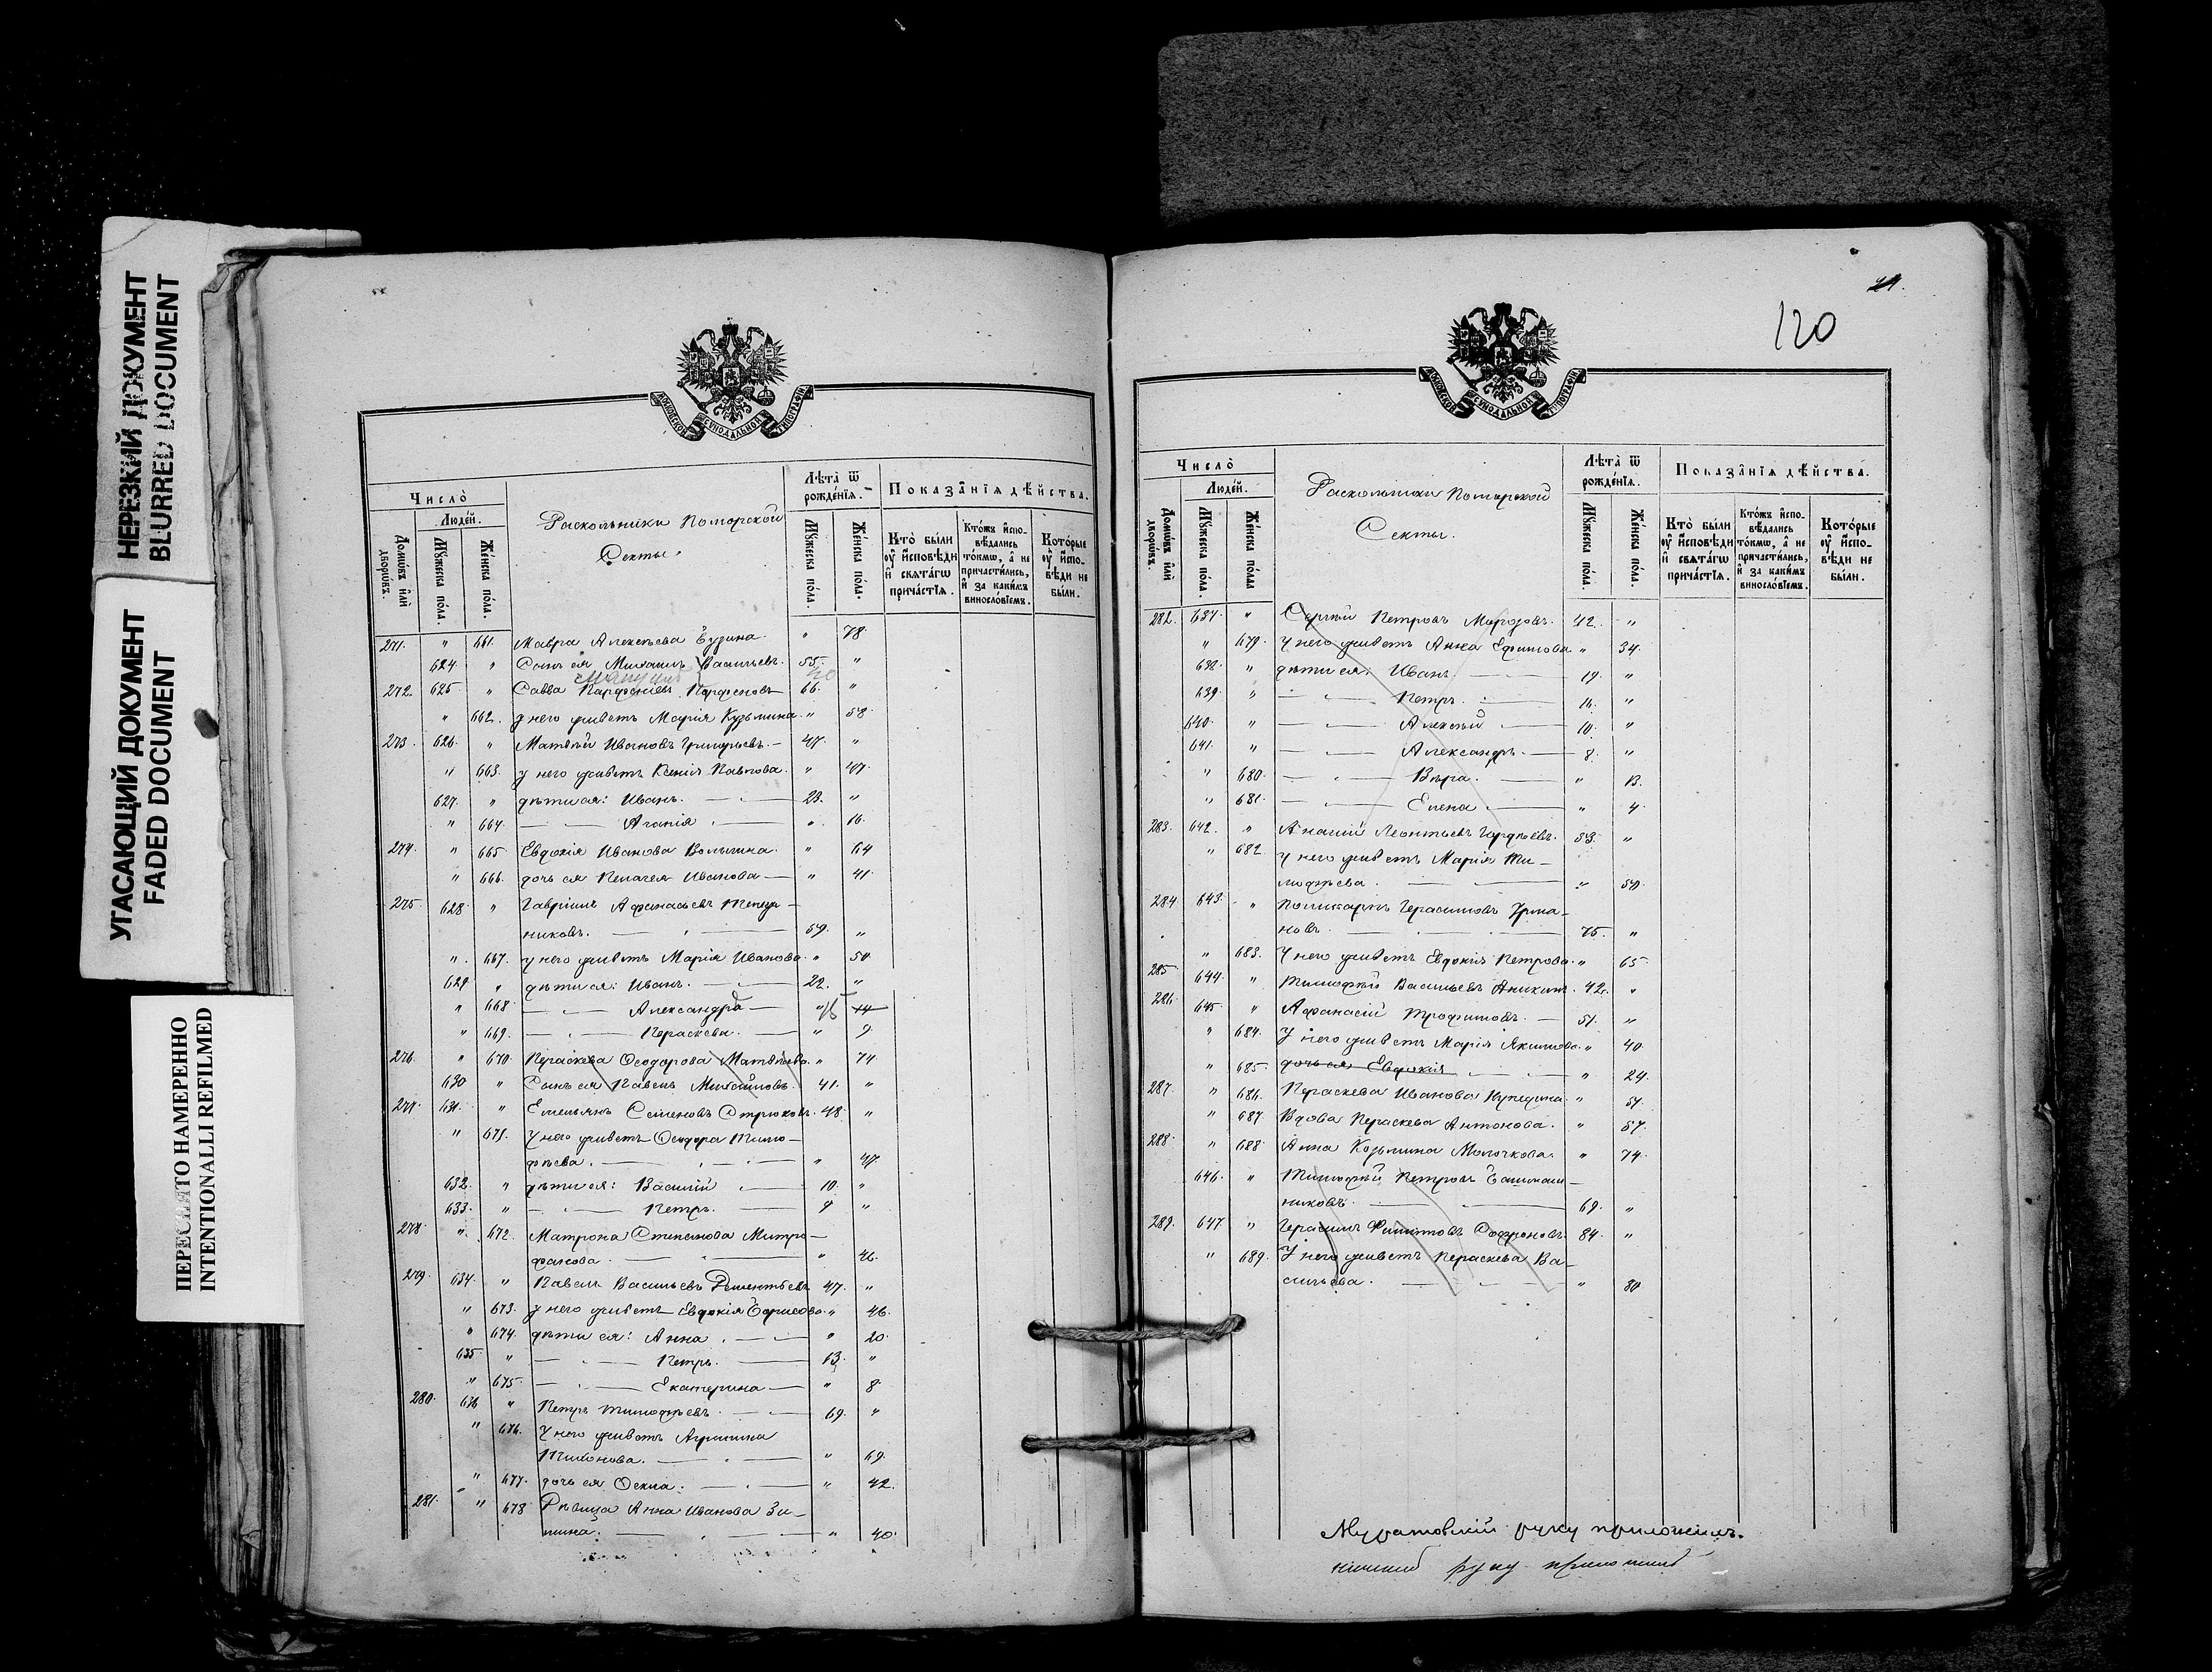 НЕРЕЗКИЙ ДОКУМЕНТ
BLURRED DOCUMENT
УГАСАЮЩИЙ ДОКУМЕНТ
FADED DOCUMENT
ПЕРЕСНЯТО НАМЕРЕННО
INTENTIONALLI REFILMED
МОСКОВСКОЙ СѴНОДАЛЬНОЙ ТИПОГРАФІИ
Число̀
Люде́й.
Домѡ́въ и҆лѝ дворѡ́въ.
Мꙋ́жеска по́ла.
Же́нска по́ла.
Раскольники Поморской
Секты.
Лѣта̀ ѿ рожде́нїѧ.
Мꙋ́жеска по́ла.
Же́нска по́ла.
Показа̑нїѧ дѣ́йства.
Кто̀ бы́ли ᲂу҆ и҆сповѣ́ди и҆ свѧта́гѡ прича́стїѧ.
Кто́жъ и҆сповѣ́дались то́кмѡ, а҆ не причасти́лись, и҆ за каки́мъ винословїемъ.
Кото́рые ᲂу҆ и҆сповѣ́ди не бы́ли.
271. " 661. Мавра Алексѣева Бузина. " 78.
624. " Сынъ ея Михаилъ Васильевъ. 55. "
272. 625. " Савва Парфеніевъ Парфеновъ 66. "
" 662. у него живетъ Марія Кузьмина. " 58.
273. 626. " Матвѣй Ивановъ Григорьевъ. 47. "
" 663. у него живетъ Ксенія Павлова. " 47.
627. " дѣти ея: Иванъ. 23. "
" 664. Агапія " 16.
274. " 665. Евдокія Иванова Волыгина. " 64
" 666. дочь ея Пелагея Иванова " 41.
275. 628. " Гавріилъ Афанасьевъ
никовъ. 59. "
" 667. у него живетъ Марія Иванова. " 50.
629 " дѣти ея: Иванъ. 22. "
" 668. Александра " 14
" 669. Параскева. " 9.
276. " 670. Параскева Ѳеодорова Матвѣева. " 74.
630 " Сынъ ея Павелъ Михайловъ. 41. "
277. 631. " Емельянъ Семеновъ Стрюковъ. 48. "
" 671. У него живетъ Ѳеодора Тимо-
фѣева. " 47.
632. " дѣти ея: Василій 10. "
633. " Петръ. 9 "
278 " 672. Матрона Степанова Митро-
фанова. " 46.
279. 634. " Павелъ Васильевъ Рементьевъ 47. "
" 673. у него живетъ Евдокія Борисова. " 46.
" 674. дѣти ея: Анна. " 20.
635. " Петръ. 13. "
" 675. Екатерина " 8.
280. 636 " Петръ Тимофѣевъ. 69. "
" 676. У него живетъ Агриппина
Тихонова. " 69.
" 677. дочь ея Ѳекла. " 42.
281. " 678 Дѣвица Анна Иванова Зи-
нина. " 40.
120
МОСКОВСКОЙ СѴНОДАЛЬНОЙ ТИПОГРАФІИ
Число̀
Люде́й.
Домѡ́въ и҆лѝ дворѡ́въ.
Мꙋ́жеска по́ла.
Же́нска по́ла
Раскольники Поморской
Секты.
Лѣта̀ ѿ рожде́нїѧ.
Мꙋ́жеска по́ла.
Же́нска по́ла.
Показа̑нїѧ дѣ́йства.
Кто̀ бы́ли ᲂу҆ и҆сповѣ́ди и҆ свѧта́гѡ прича́стїѧ.
Кто́жъ и҆сповѣ́дались то́кмѡ, а҆ не причасти́лись, и҆ за каки́мъ винословїемъ.
Кото́рые ᲂу҆ и҆сповѣ́ди не бы́ли.
282. 637. " Сергѣй Петровъ Морозовъ. 42. "
" 679. У него живетъ Анна Ефимова " 34.
638. " дѣти ея: Иванъ. 19. "
639. " Петръ. 14. "
640. " Алексѣй 10. "
641. " Александръ. 8. "
" 680. Вѣра. " 13.
" 681. Елена " 4.
283. 642. " Ананій Леонтьевъ Гордѣевъ. 53. "
" 682. У него живетъ Марія Ти-
мофѣева. " 50.
284. 643. " Поликарпъ Герасимовъ Урма-
новъ 75. "
" 683. У него живетъ Евдокія Петрова. " 65.
285. 644. " Тимофѣй Васильевъ Аникинъ. 42. "
286. 645. " Афанасій Трофимовъ. 51. "
" 684. У него живетъ Марія Якимова. " 40.
" 685. дочь ея Евдокія " 24.
287. " 686. Параскева Иванова " 51.
" 687. Вдова Параскева Антонова. " 57.
288. " 688. Анна Козьмина Молочкова. " 74.
646. " Тимофѣй Петровъ Башмаш-
никовъ. 69. "
289. 647 " Герасимъ Филиповъ Софроновъ 84. "
" 689. У него живетъ Параскева Ва-
сильева. " 80
Муратовскій руку приложилъ.
руку приложилъ